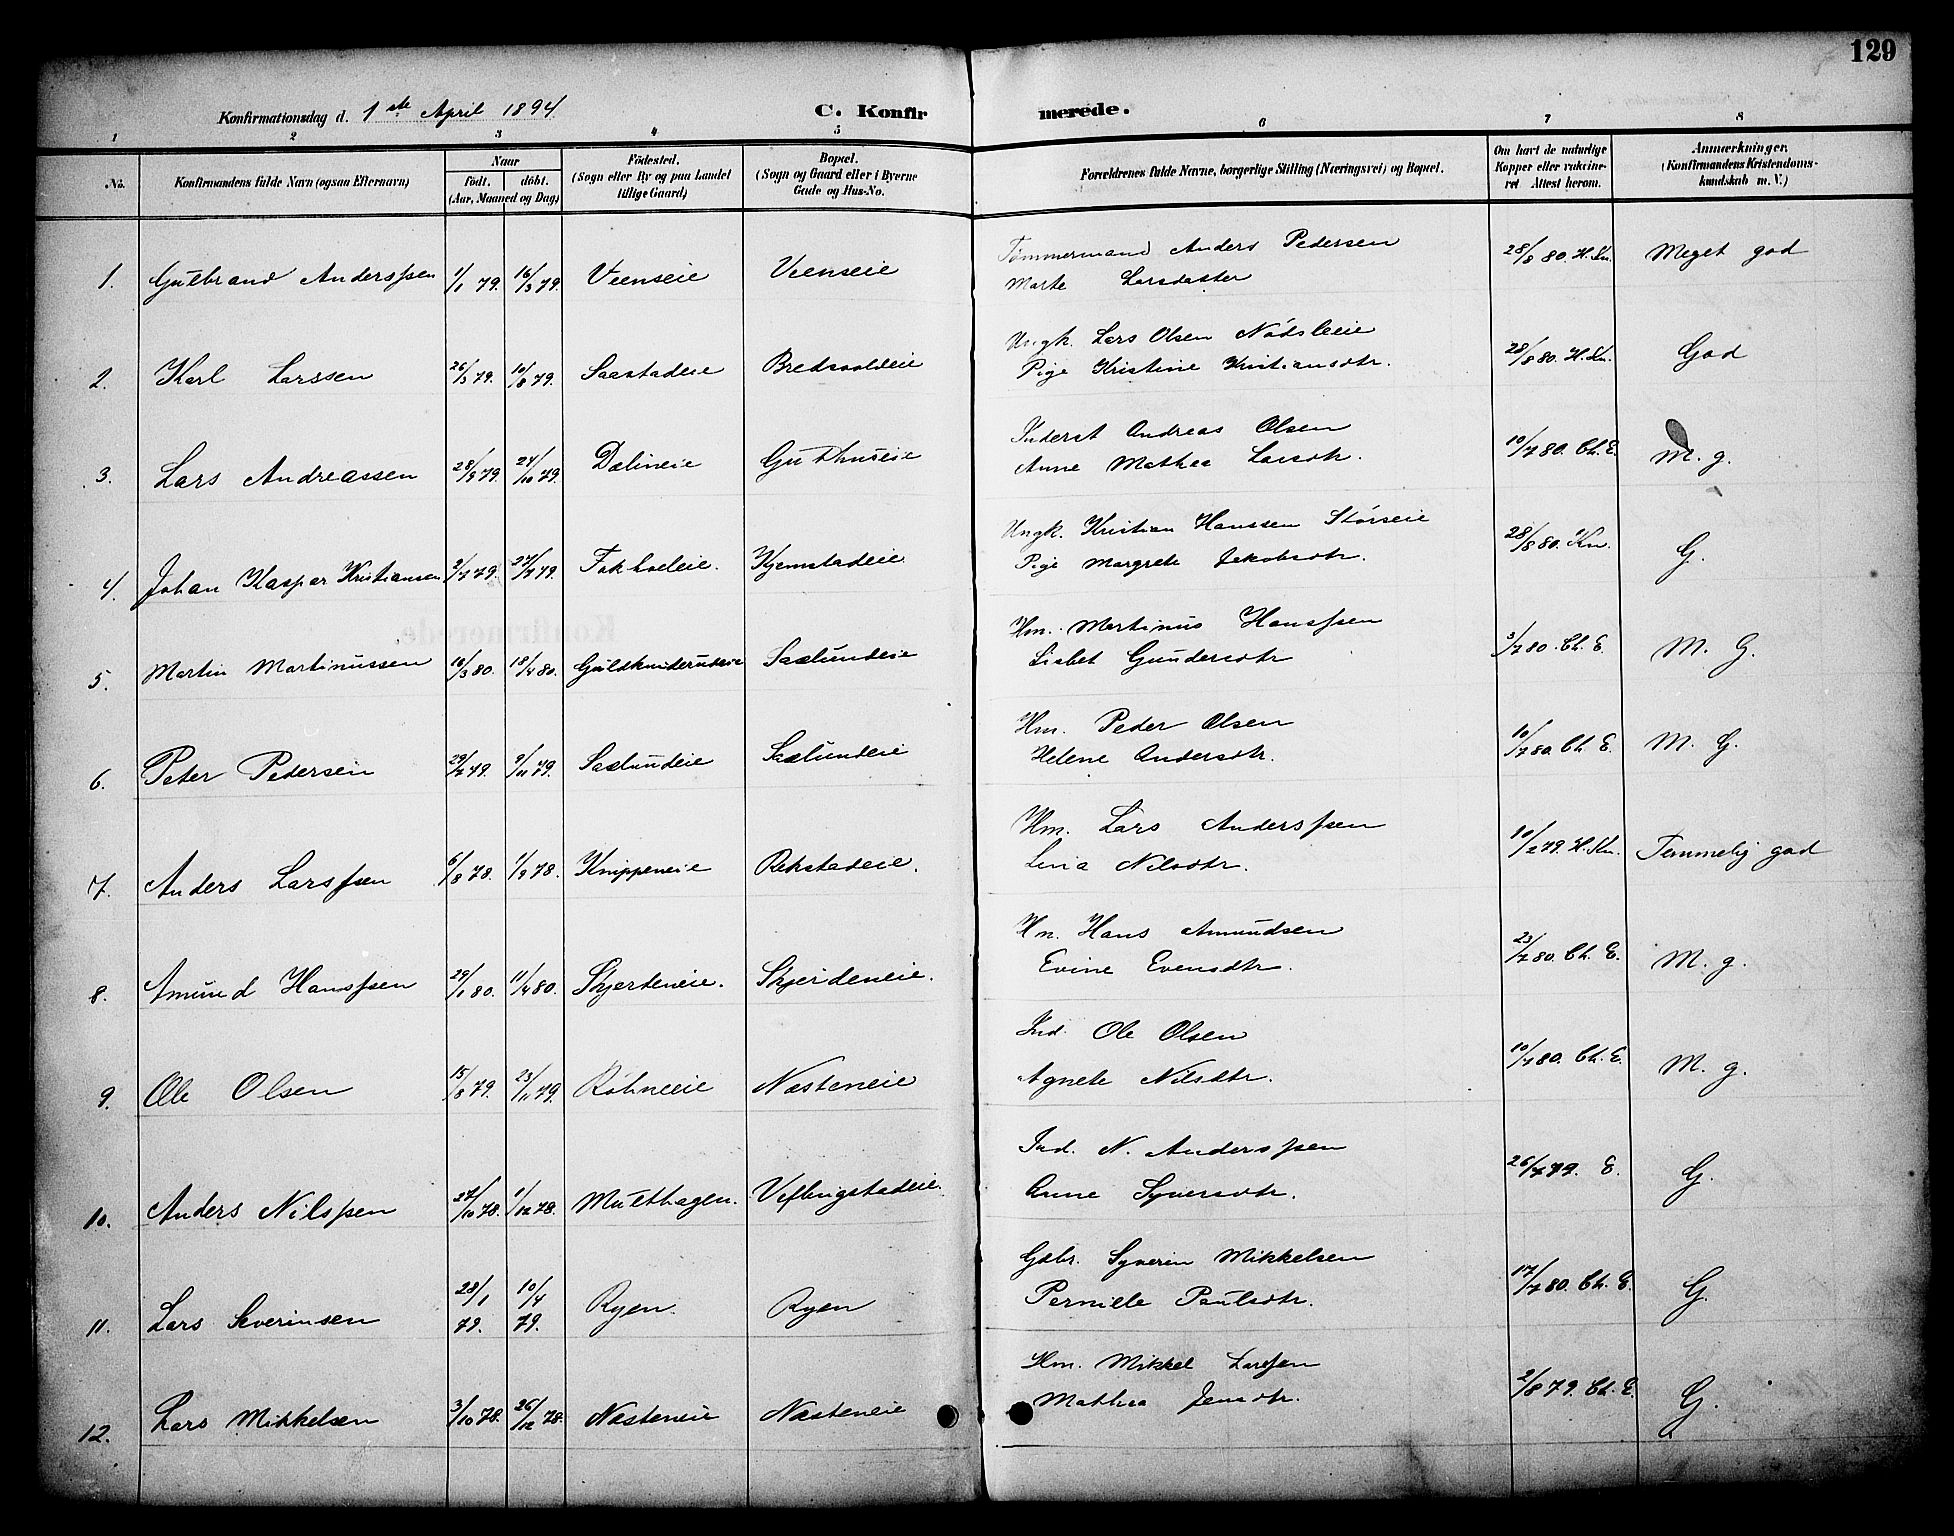 129
Konfirmationsdag d. 1ste April 1894 C. Konfirmerede.
1 2 3 4 5 6 7 8
No. Konfirmandens fulde Navn (ogsaa Efternavn) Naar født. døbt. (Aar, Maaned og Dag) Fødested. (Sogn eller By og paa Landet tillige Gaard) Bopæl. (Sogn og Gaard eller i Byerne Gade og Hus-No. Forældrenes fulde Navne, borgerlige Stilling (Næringsvei) og Bopæl. Om havt de naturlige Kopper eller vakcineret Attest herom. Anmærkninger. (Konfirmandens Kristendomskundskab m. V.)
1. Gulbrand Anderssen 1/1 79. 16/3 79. Veenseie Veenseie Tømmermand Anders Pedersen 28/8 80. H. Kn. Meget god
Marte Larsdatter
2. Karl Larssen 26/3 79. 10/8 79. Saastadeie Bredvoldeie Ungk. Lars Olsen Nødsleeie 28/8 80. H. Kn. God
Pige Kristine Kristiansdtr.
3. Lars Andreassen 28/8 79. 24/10 79. Dælineie Guthuseie Inderst Andreas Olsen 10/7 80. Ch. E. M. g.
Anne Mathea Larsdtr.
4. Johan Kaspar Kristiansen 2/7 79. 27/7 79. Fokholeie. Kjemstadeie Ungk. Kristian Hanssen Størseie 28/8 80. Kn. G.
Pige Margrete Jakobsdtr.
5. Martin Martinussen 16/3 80. 18/4 80. Guldknderudeie Saxlundeie Hm. Martinus Hanssen 3/7 80. Ch. E. M. G.
Lisbet Gundersdtr
6. Peter Pedersen 29/7 79. 9/11 79. Saxlundeie Saxlundeie Hm. Peder Olsen 10/7 80. Ch. E. M. G.
Helene Andersdtr.
7. Anders Larssen 6/8 78. 1/9 78. Knippeneie Rekstadeie. Hm. Lars Anderssen 10/2 79. H. Kn. Temmelig god
Lina Nilsdtr.
8. Amund Hanssen 29/1 80. 11/4 80. Skjerdeneie. Skjerdeneie. Hm. Hans Amundsen 23/7 80. Ch. E. M. g.
Evine Evensdtr.
9. Ole Olsen 15/8 79. 23/11 79. Røhneeie Næsteneie Ind. Ole Olsen 10/7 80. Ch. E. M. g.
Agnete Nilsdtr.
10. Anders Nilssen 27/10 78. 1/12 78. Multhagen. Veflingstadeie. Ind. N. Anderssen 26/7 79. E. G.
Anne Syversdtr.
11. Lars Severinsen 28/1 79. 10/4 79. Ryen. Ryen Gdbr. Syverin Mikkelsen 17/7 80. Ch. E. G.
Pernille Paulsdtr.
12. Lars Mikkelsen 3/10 78. 26/12 78. Næsteneie Næsteneie Hm. Mikkel Larssen 2/8 79. Ch. E. G.
Mathea Jensdtr.